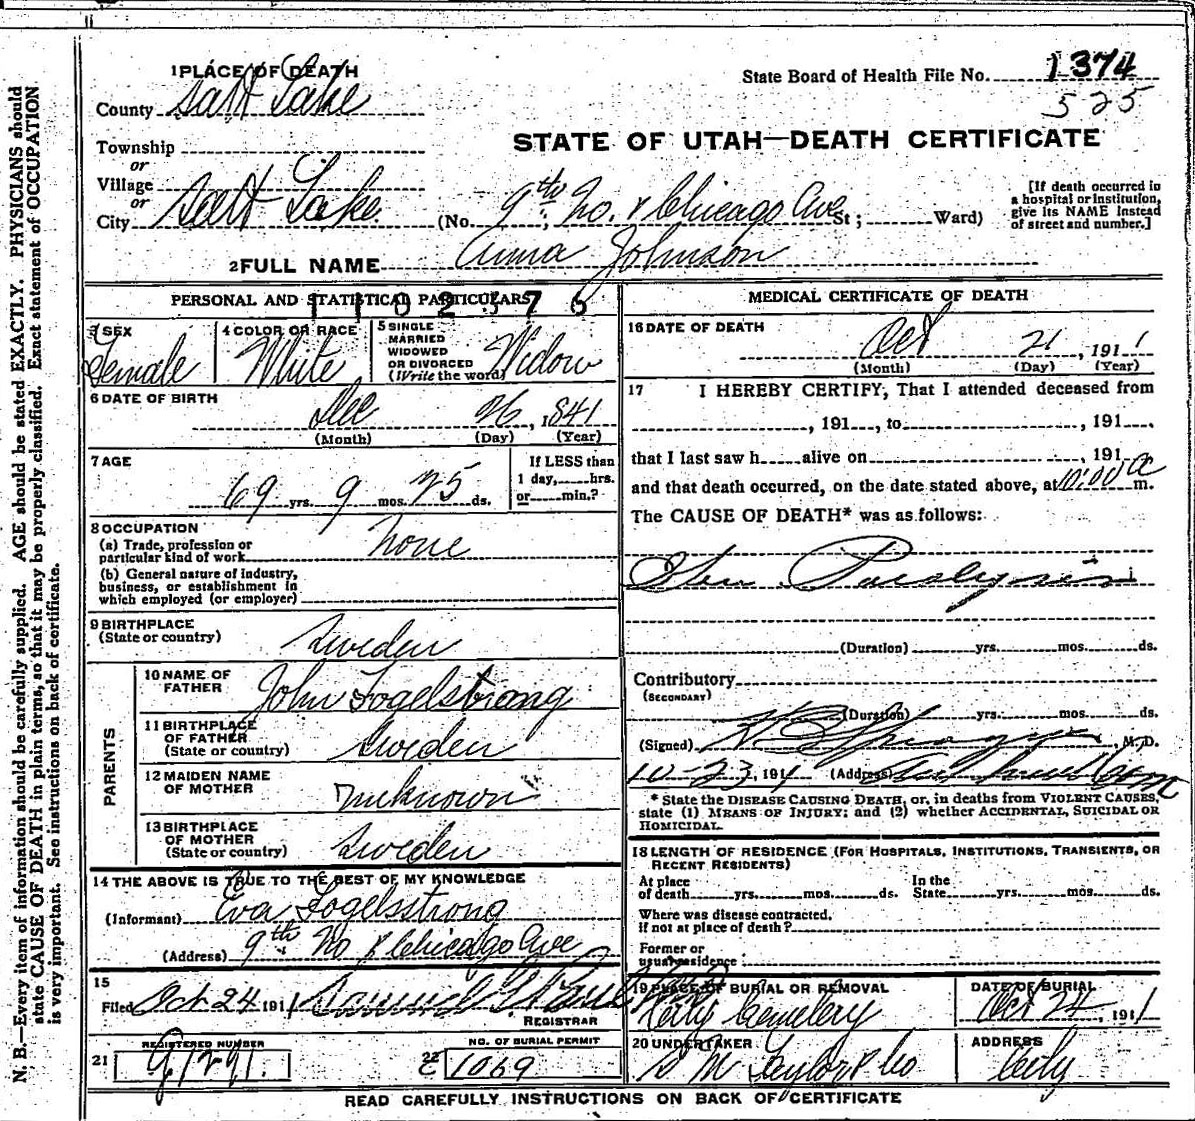 1 PLACE OF DEATH
State Board of Health File No. 1374
County Salt Lake
525
STATE OF UTAH—DEATH CERTIFICATE
Township
or
Village
or
City Salt Lake (No. 9th No. & Chicago Ave St; Ward)
[If death occurred in
a hospital or institution,
give its NAME instead
of street and number.]
2 FULL NAME Anna Johnson
PERSONAL AND STATISTICAL PARTICULARS
1102576
3 SEX
Female
4 COLOR OR RACE
White
5 SINGLE
MARRIED
WIDOWED
OR DIVORCED
(Write the word) Widow
6 DATE OF BIRTH
Dec 26, 1841
(Month) (Day) (Year)
7 AGE
69 yrs. 9 mos. 25 ds.
If LESS than
1 day, hrs.
or min.?
8 OCCUPATION
(a) Trade, profession or
particular kind of work None
(b) General nature of industry,
business, or establishment in
which employed (or employer)
9 BIRTHPLACE
(State or country) Sweden
PARENTS
10 NAME OF
FATHER John Fogelstrong
11 BIRTHPLACE
OF FATHER
(State or country) Sweden
12 MAIDEN NAME
OF MOTHER Unknown
13 BIRTHPLACE
OF MOTHER
(State or country) Sweden
14 THE ABOVE IS TRUE TO THE BEST OF MY KNOWLEDGE
(Informant) Eva Fogelsstrong
(Address) 9th No & Chicago Ave
15
Filed Oct 24 1911 Samuel G.
REGISTRAR
21 REGISTERED NUMBER
22 NO. OF BURIAL PERMIT
C 1069
MEDICAL CERTIFICATE OF DEATH
16 DATE OF DEATH
Oct 21, 1911
(Month) (Day) (Year)
17 I HEREBY CERTIFY, That I attended deceased from
, 191 , to , 191
that I last saw h alive on , 191
and that death occurred, on the date stated above, at 10:00 a m.
The CAUSE OF DEATH* was as follows:
Paralysis
(Duration) yrs. mos. ds.
Contributory
(SECONDARY)
(Duration) yrs. mos. ds.
(Signed) , M.D.
10-23, 191 (Address)
* State the DISEASE CAUSING DEATH, or, in deaths from VIOLENT CAUSES,
state (1) MEANS OF INJURY; and (2) whether ACCIDENTAL, SUICIDAL OR
HOMICIDAL.
18 LENGTH OF RESIDENCE (FOR HOSPITALS, INSTITUTIONS, TRANSIENTS, OR
RECENT RESIDENTS)
At place
of death yrs. mos. ds.
In the
State yrs. mos. ds.
Where was disease contracted,
if not at place of death?
Former or
usual residence
19 PLACE OF BURIAL OR REMOVAL
City Cemetery
DATE OF BURIAL
Oct 24, 1911
20 UNDERTAKER
S M Taylor & Co
ADDRESS
City
READ CAREFULLY INSTRUCTIONS ON BACK OF CERTIFICATE
N. B.—Every item of information should be carefully supplied. AGE should be stated EXACTLY. PHYSICIANS should
state CAUSE OF DEATH in plain terms, so that it may be properly classified. Exact statement of OCCUPATION
is very important. See instructions on back of certificate.